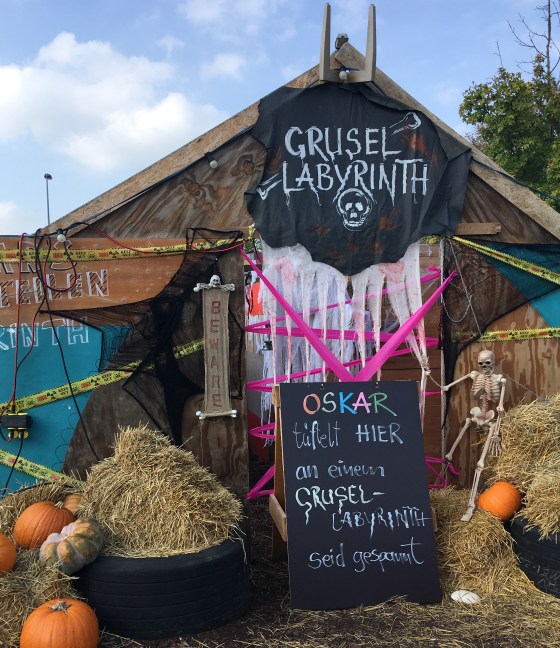 GRUSEL
LABYRINTH
BEWARE
OSKAR
tüftelt HIER
an einem
GRUSEL-
LABYRINTH
seid gespannt